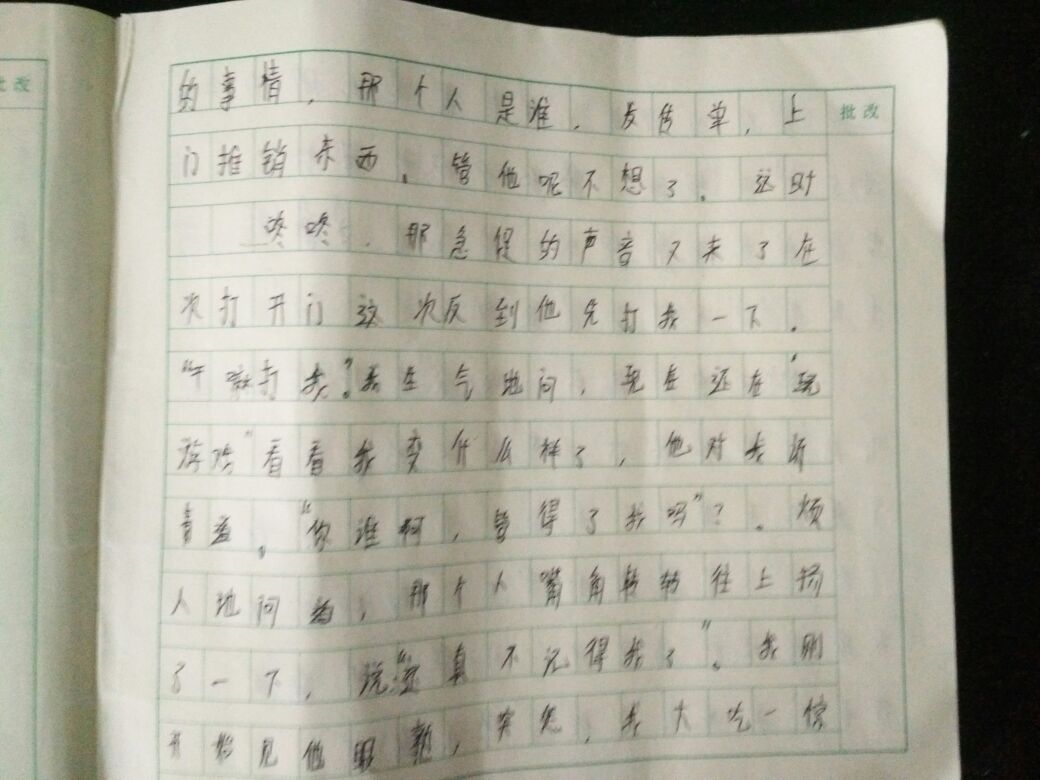 批改
的事情，那个人是谁，发传单，上
批改
门推销东西。管他呢不想了。这时
咚咚，那急促的声音又来了在
次打开门这次反到他先打我一下。
“干嘛打我”。我生气地问，现在还在“玩
游戏”看看我变什么样了，他对我
着。“你谁啊，管得了我吗”？。烦
人地问着，那个人嘴角转转往上扬
了一下，说“ 真不记得我了”。我刚
开始见他眼熟，突然，我大吃一惊